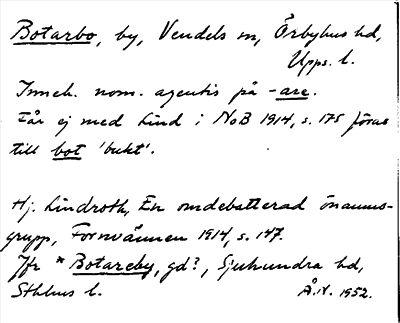 Botarbo, by, Vendels sn, Örbyhus hd,
Upps. l.
Inneh. nom. agentis på -are.
Får ej med Lind i NoB 1914, s. 175 föras
till bot 'bukt'.
Hj. Lindroth, En omdebatterad önamns-
grupp, Fornvännen 1914, s. 147.
Jfr * Botareby, gd?, Sjuhundra hd,
Sthlms l.
Å.N. 1952.